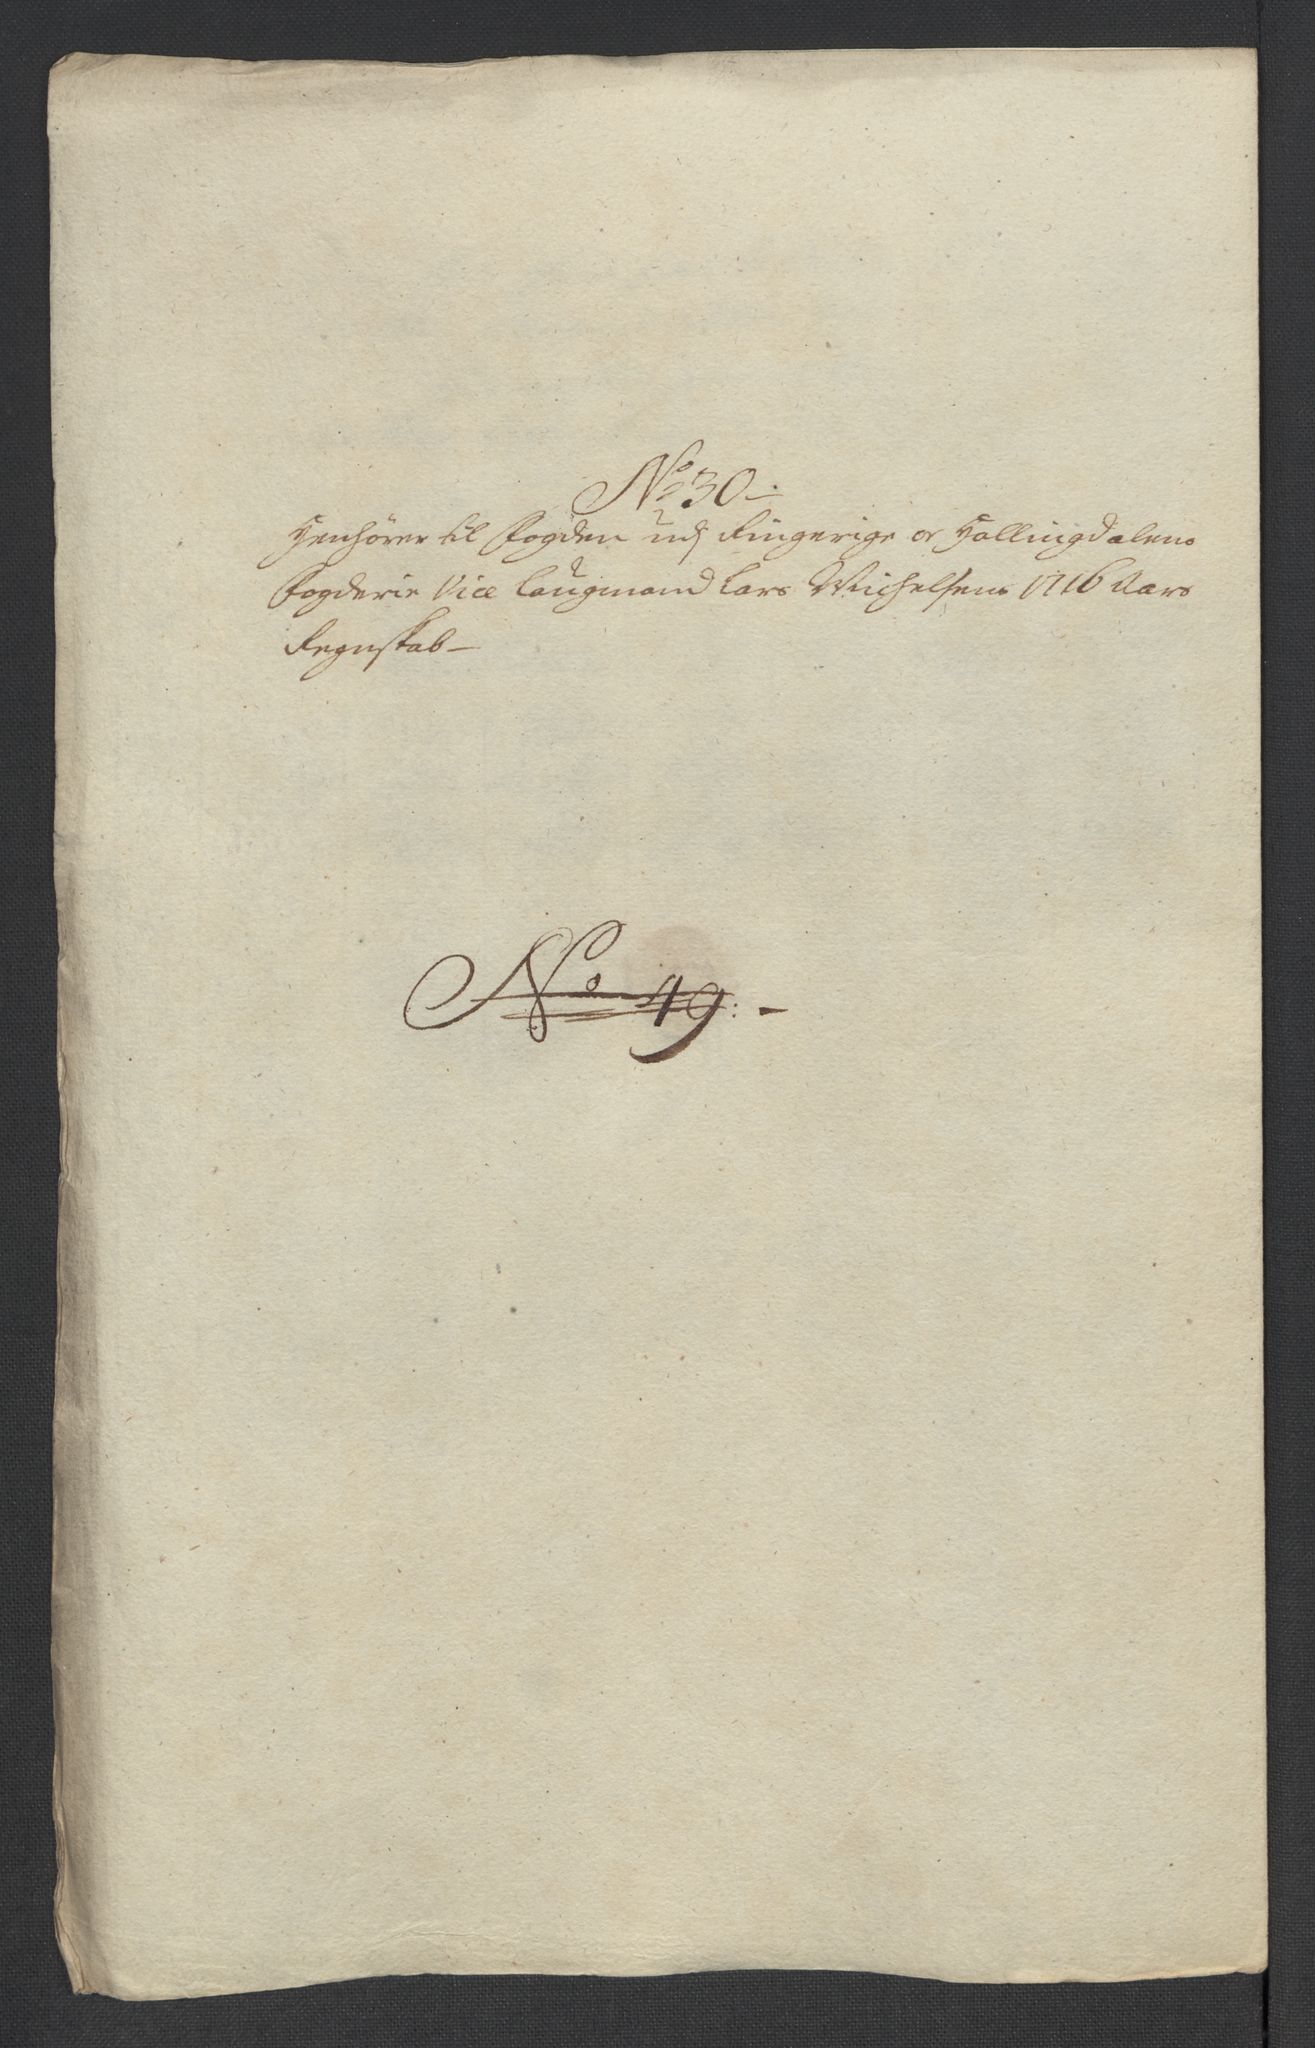 No 30.
Henhörer til Fogden udj Ringerige og Hallingdalens
Fogderie Vice Laugmand Lars Michelsens 1716 Aars
Regnskab
No 49: